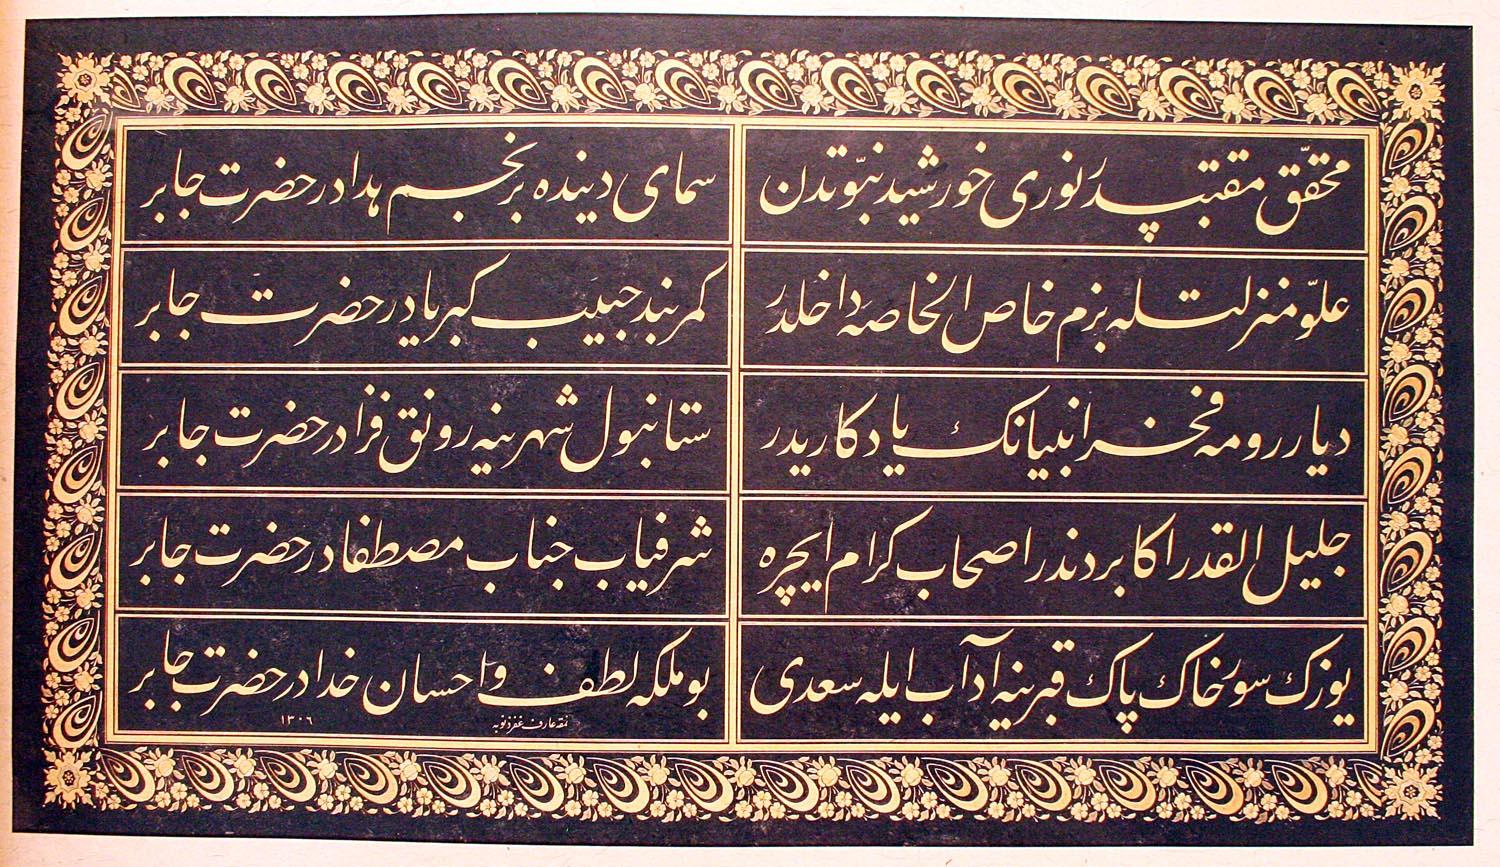 محقّق مقتبسدُر نوری خورشید نبوّتدن
سمای دینده بر نجم هدادر حضرت جابر
علوّ منزلتله بزم خاص الخاصه داخلدُر
کمربند حبیب کبریادر حضرت جابر
دیار رومه فخر انبیانک یادکاریدر
ستانبول شهرینه رونق فزادر حضرت جابر
جلیل القدر اکابردندر اصحاب کرام ایچره
شرفیاب جناب مصطفادر حضرت جابر
یوزک سور خاک پاک قبرینه آداب ایله سعدی
بو ملکه لطف و احسان خدادر حضرت جابر
نمقه عارف غفر ذنوبه
١٣٠٦